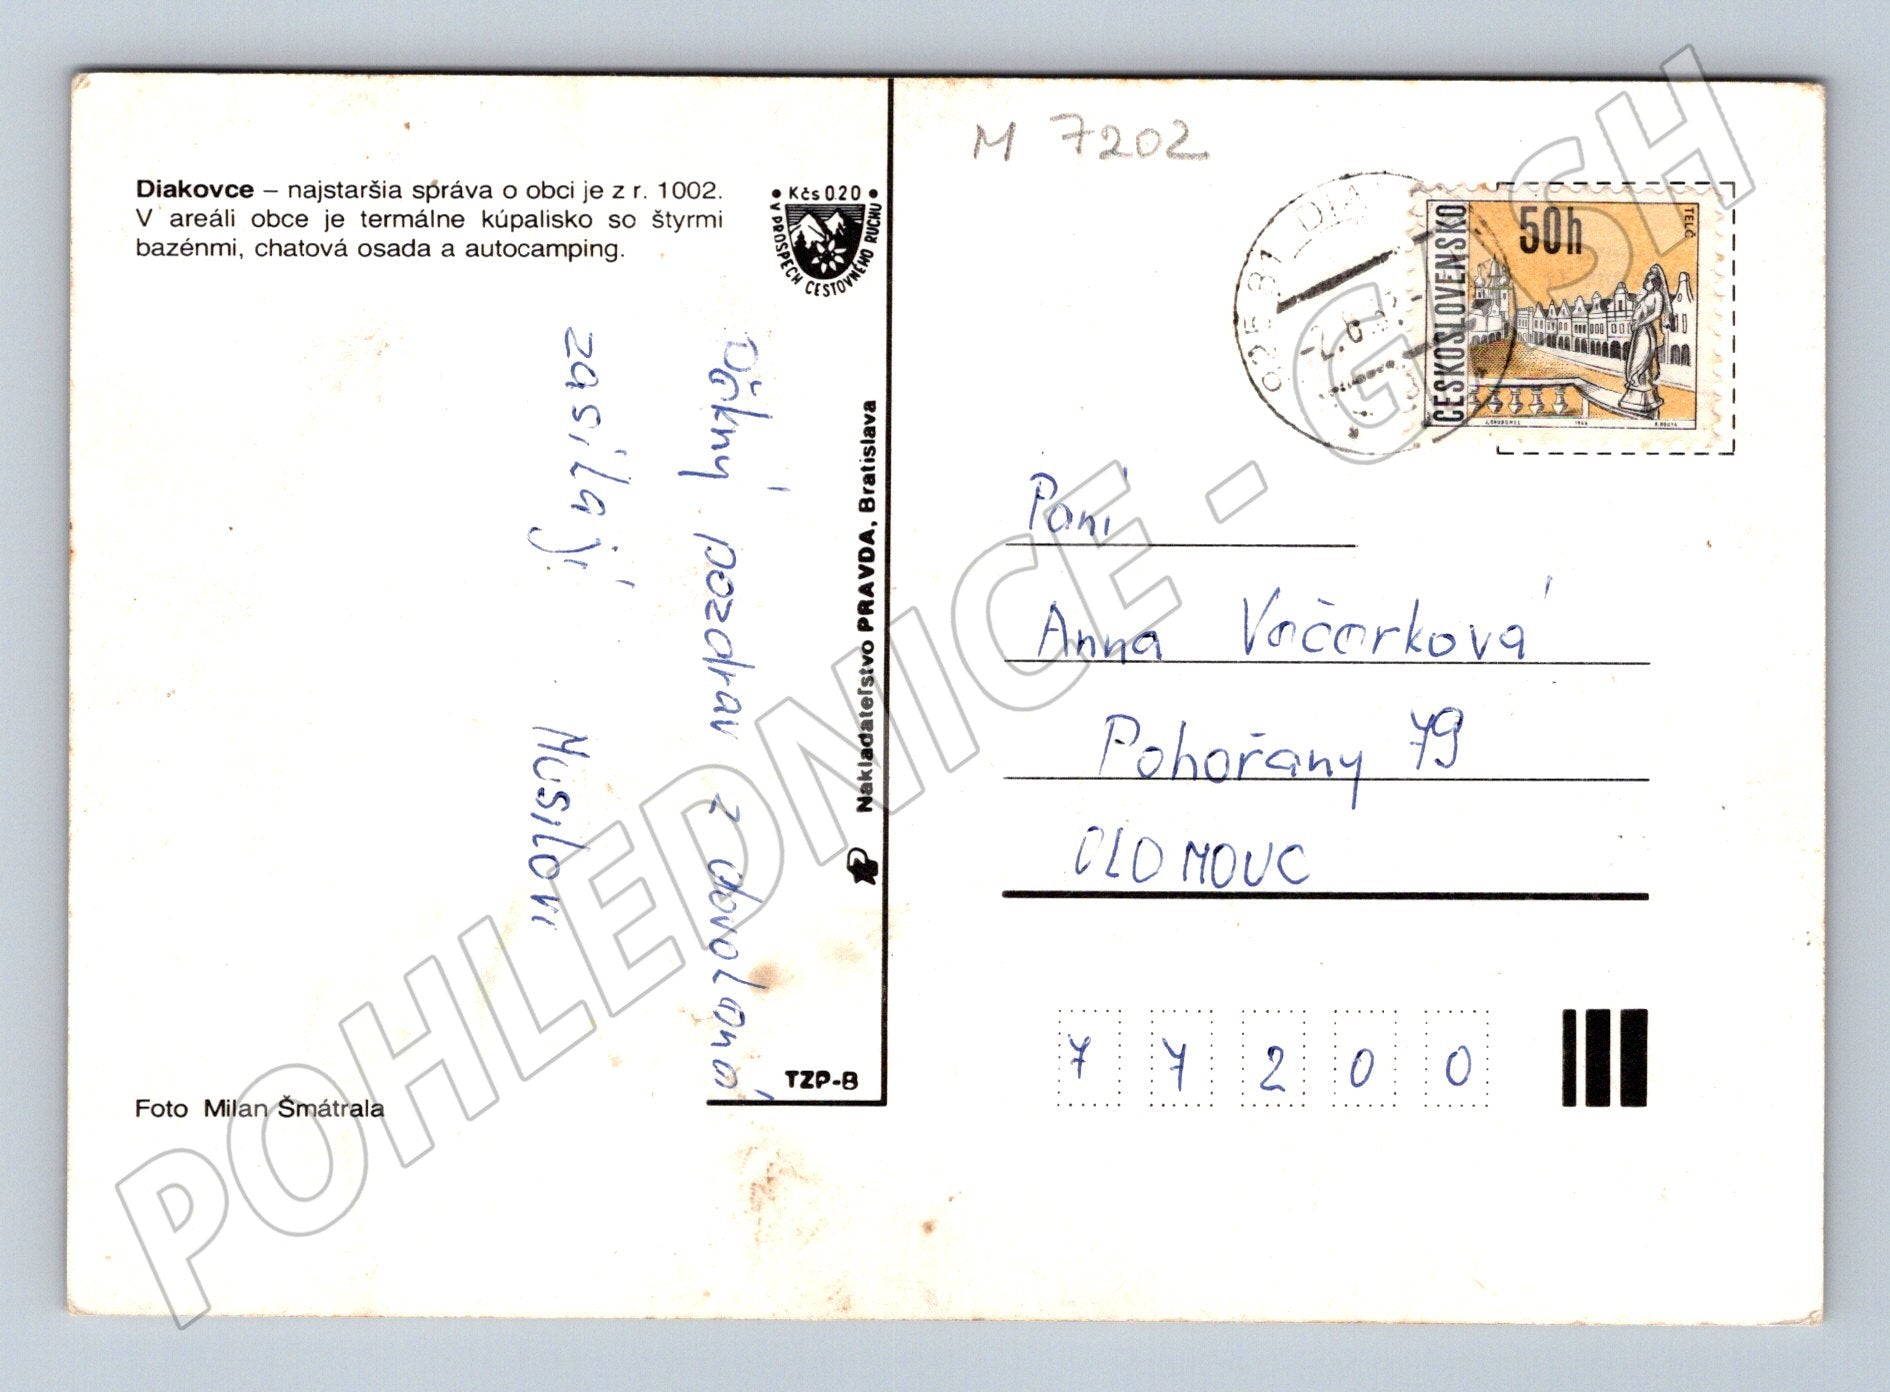 M 7202
Diakovce – najstaršia správa o obci je z r. 1002.
V areáli obce je termálne kúpalisko so štyrmi
bazénmi, chatová osada a autocamping.
Kčs 0.20
V PROSPECH CESTOVNÉHO RUCHU
925 81 DIA
2.8.
ČESKOSLOVENSKO
50h
TELČ
1966
pozdrav z dovolené
zasílají
Musilovi
Nakladateľstvo PRAVDA, Bratislava
TZP-B
Foto Milan Šmátrala
Paní
Anna Vačarková
Pohořany 79
OLOMOUC
77200
POHLEDNICE - GUSH